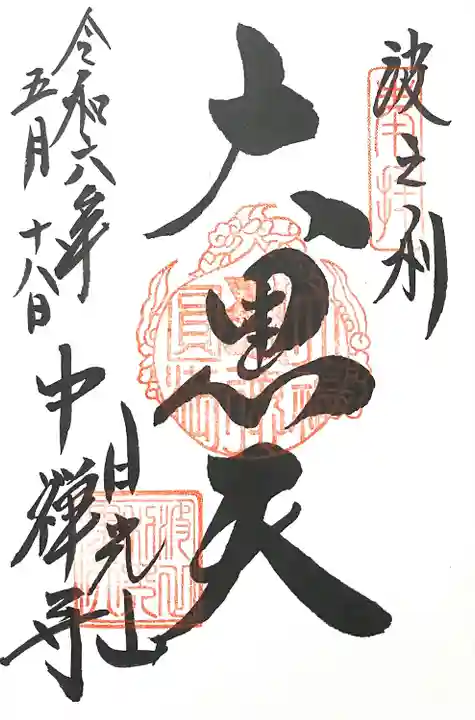 波之利
大黒天
日光山
中禅寺
令和六年
五月十八日
奉拝